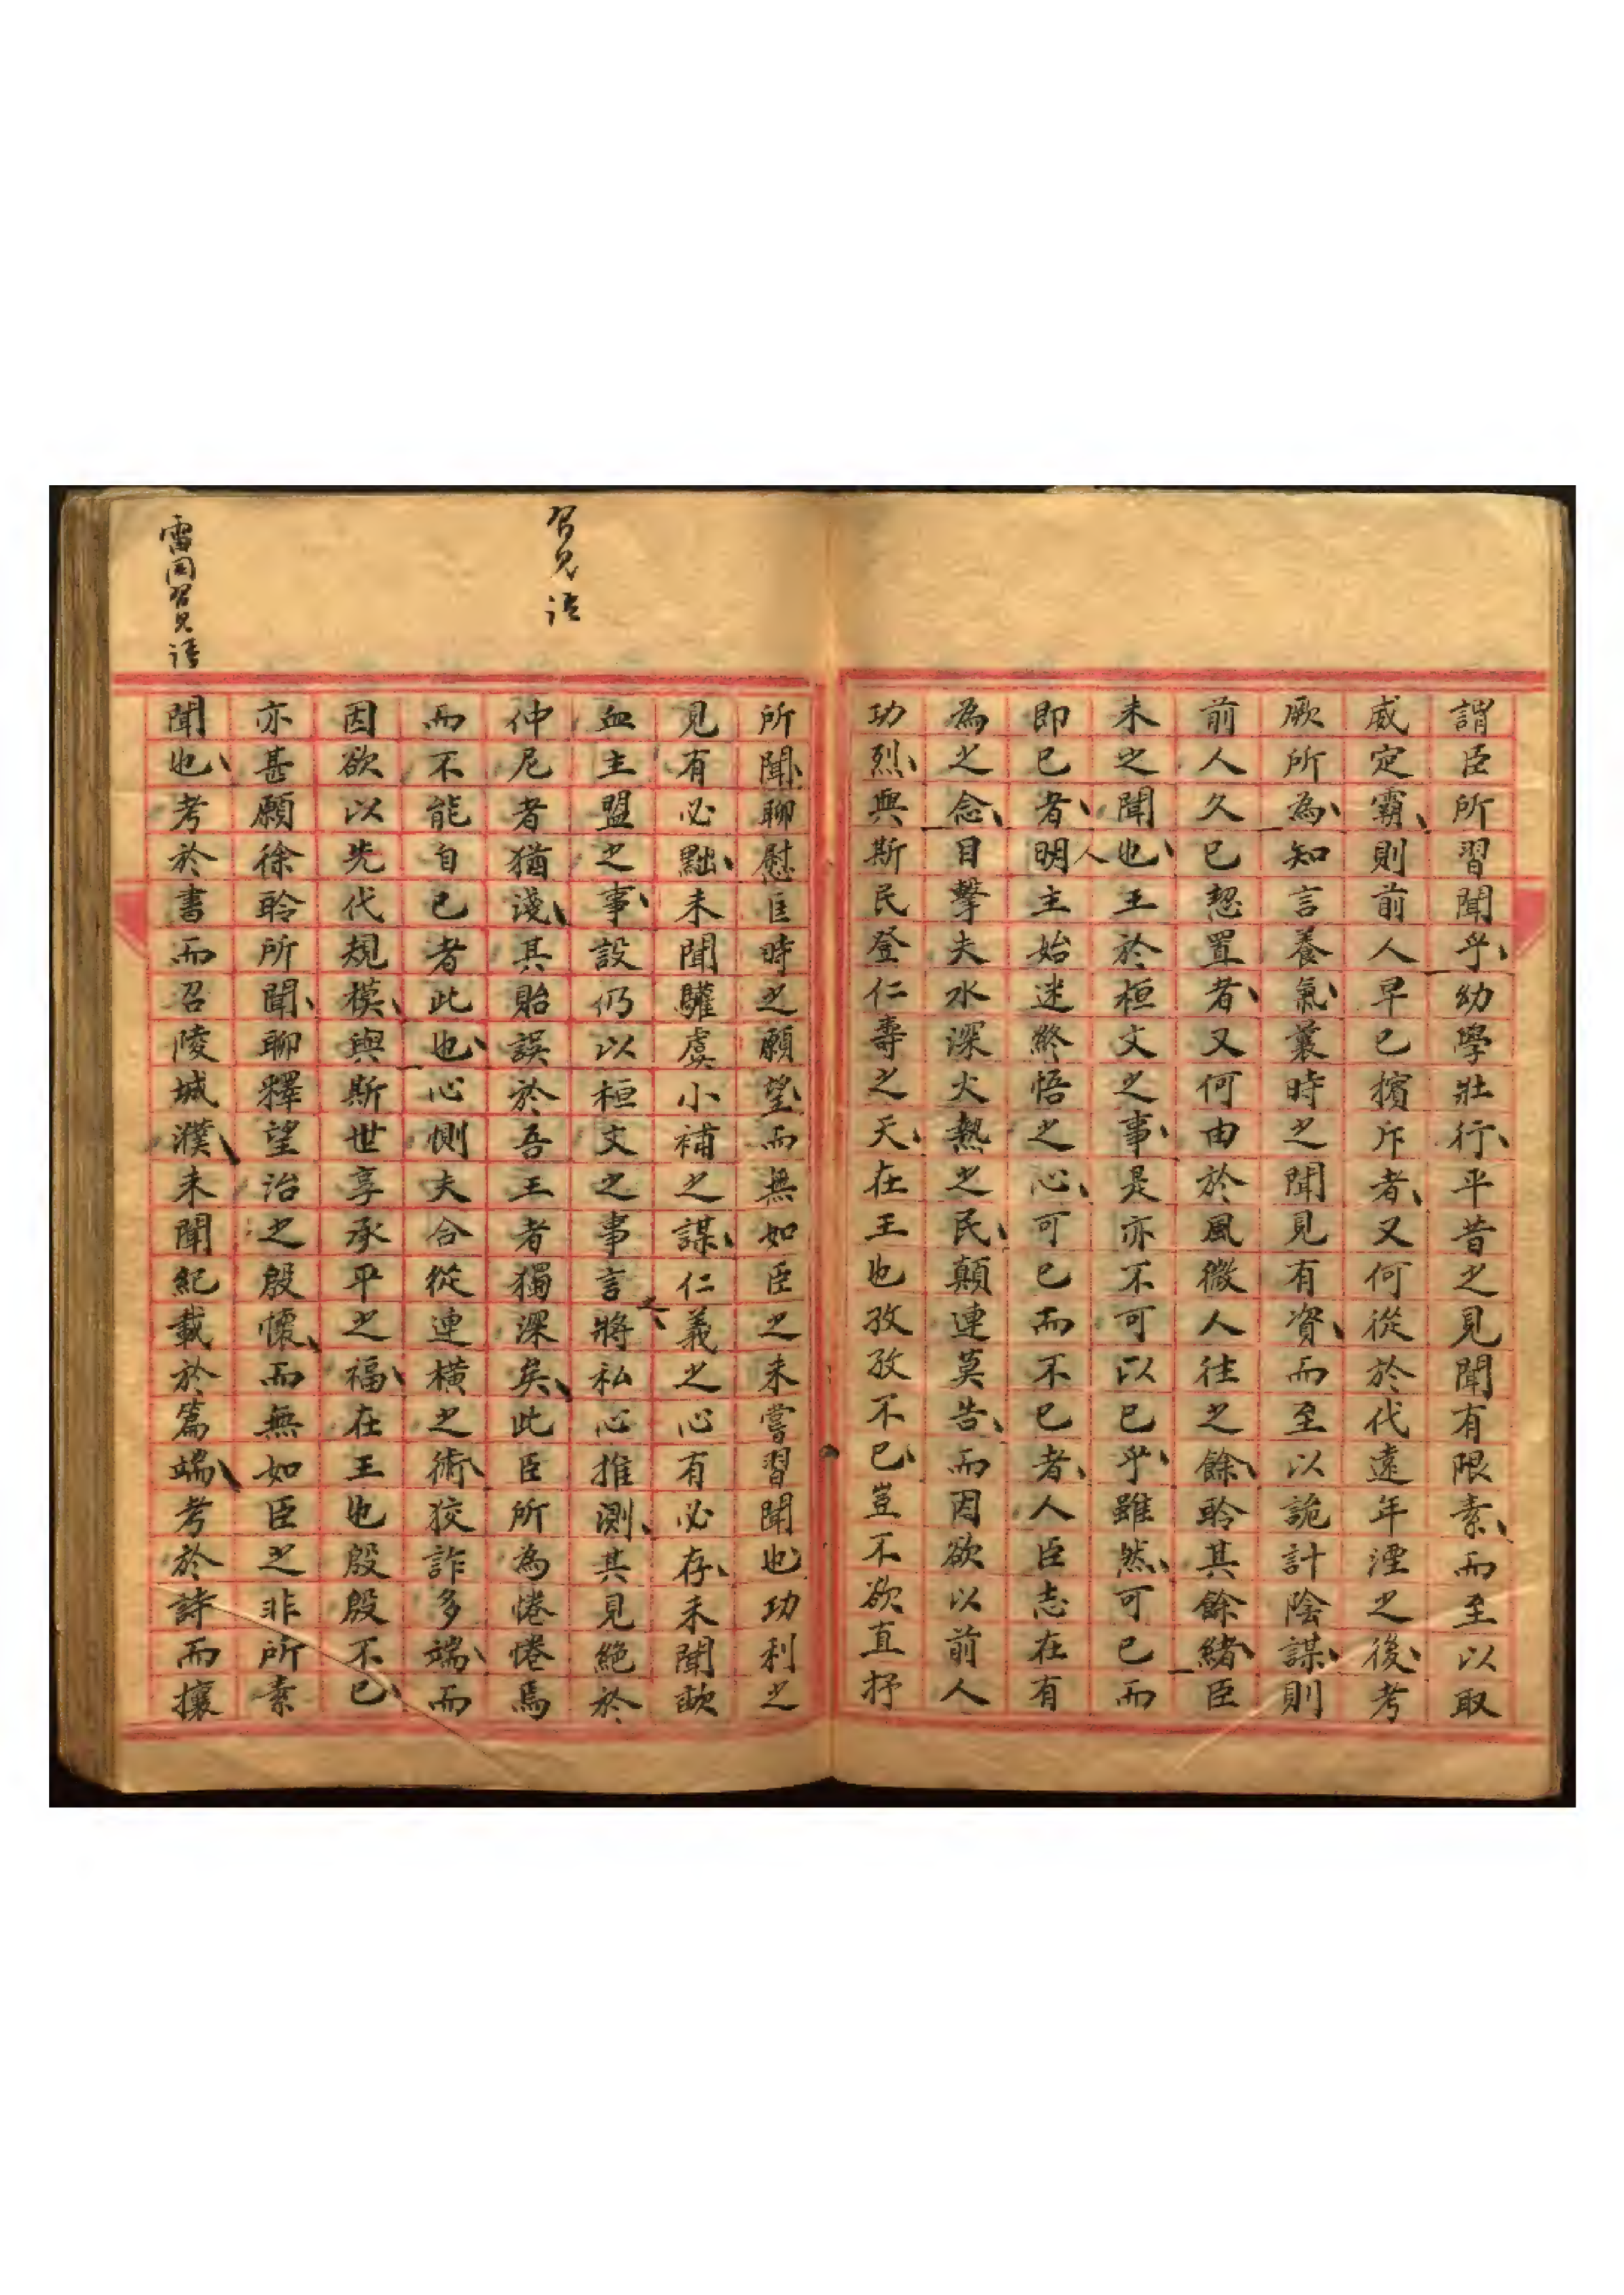 謂臣所習聞乎、幼學壯行、平昔之見聞有限素、而至以取
威定霸、則前人早已擯斥者、又何從於代遠年湮之後、考
厥所為、知言養氣、曩時之聞見有資、而至以詭計陰謀、則
前人久已恝置者、又何由於風微人往之餘、聆其餘緒、臣
未之聞也、王於桓文之事、是亦不可以已乎、雖然、可已而
即已者、人明主始迷終悟之心、可已而不已者、人臣志在有
為之念、目擊夫水深火熱之民、顛連莫告、而因欲以前人
功烈、與斯民登仁壽之天、在王也孜孜不已、豈不欲直抒
所聞、聊慰匡時之願望而無如臣之未嘗習聞也、功利之
見有必黜、未聞驩虞小補之謀、仁義之心有必存、未聞歃
習見語
血主盟之事、設仍以桓文之事言之、將私心推測、其見絕於
仲尼者猶淺、其貽誤於吾王者獨深矣、此臣所為惓惓焉
而不能自已者此也、心惻夫合從連橫之術、狡詐多端、而
因欲以先代規模、與斯世享承平之福、在王也殷殷不已、
亦甚願徐聆所聞、聊釋望治之殷懷、而無如臣之非所素
雷同習見語
聞也、考於書而召陵城濮、未聞紀載於篇端、考於詩而攘